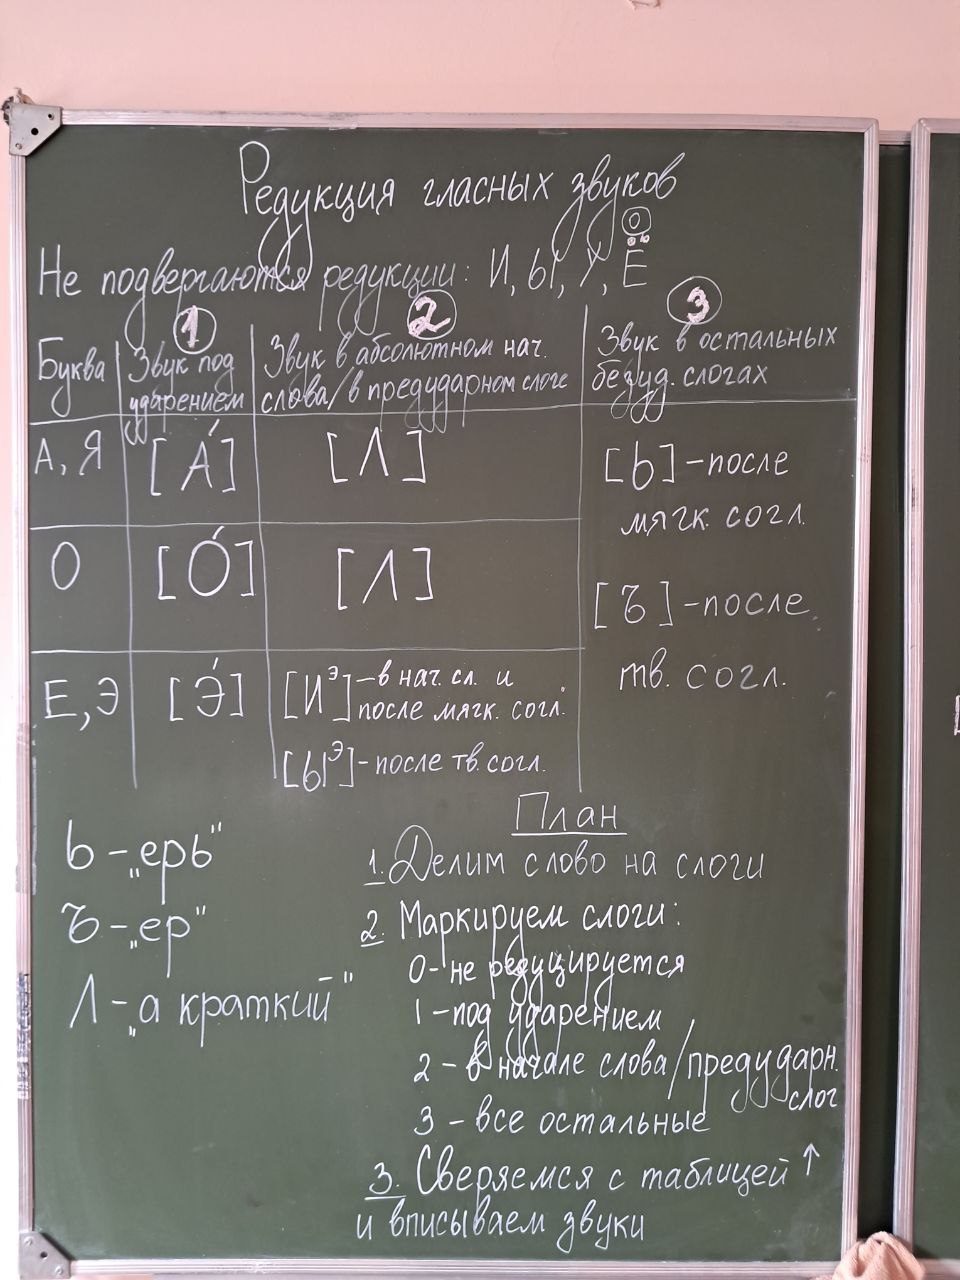 Редукция гласных звуков
Не подвергаются редукции: И, Ы, У, Ё
[О]
1
2
3
Буква
Звук под
ударением
Звук в абсолютном нач.
слова/в предударном слоге
Звук в остальных
безуд. слогах
А, Я
[А́]
[Λ]
[Ь] - после
мягк. согл.
О
[О́]
[Λ]
[Ъ] - после
тв. согл.
Е, Э
[Э́]
[Иэ] - в нач. сл. и
после мягк. согл.
[Ыэ] - после тв. согл.
Ь - „ерь"
Ъ - „ер"
Λ - „а краткий"
План
1. Делим слово на слоги
2. Маркируем слоги:
0 - не редуцируется
1 - под ударением
2 - в начале слова/предударн.
слог
3 - все остальные
3. Сверяемся с таблицей ↑
и вписываем звуки